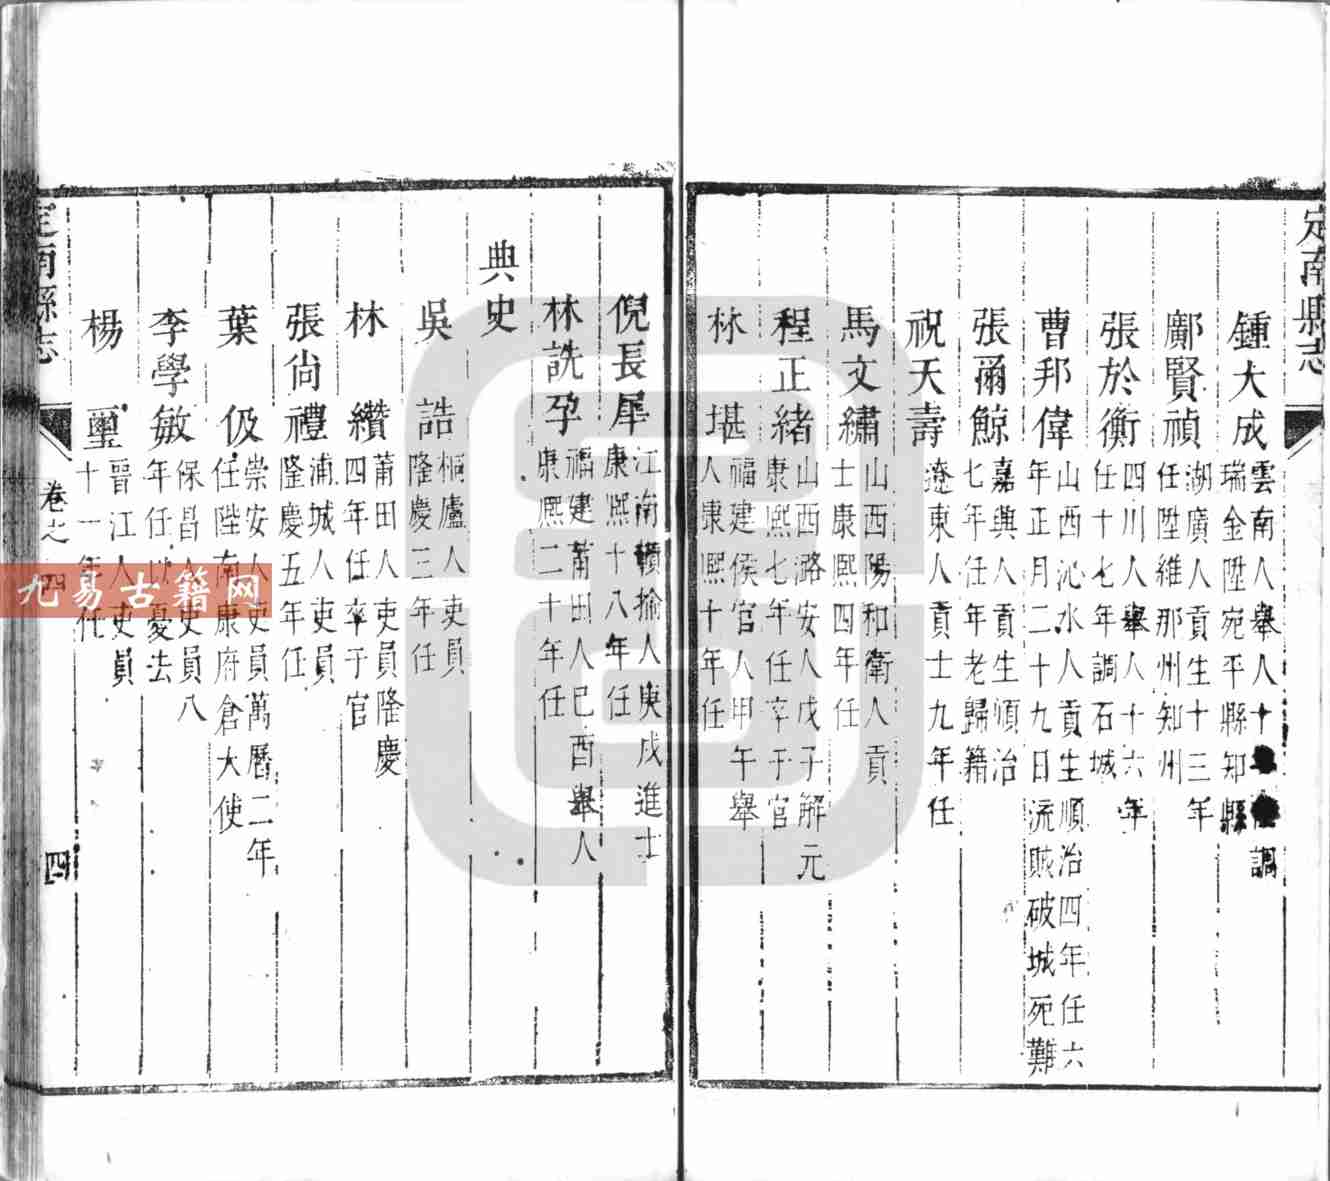 定南縣志
鍾大成 雲南人舉人十 調
瑞金陞宛平縣知縣
鄺賢禎 湖廣人貢生十三年
任陞維那州知州
張於衡 四川人舉人十六年
任十七年調石城
曹邦偉 山西沁水人貢生順治四年任六
年正月二十九日流賊破城死難
張爾鯨 嘉興人貢生順治
七年任年老歸籍
祝天壽 遼東人貢士九年任
馬文繡 山西陽和衛人貢
士康熙四年任
程正緒 山西潞安人戊子解元
康熙七年任卒于官
林堪 福建侯官人甲午舉
人康熙十年任
倪長犀 江南贛揄人庚戌進士
康熙十八年任
林詵孕 福建莆田人己酉舉人
康熙二十年任
典史
吳誥 桐廬人吏員
隆慶三年任
林纘 莆田人吏員隆慶
四年任卒于官
張尚禮 浦城人吏員
隆慶五年任
葉伋 崇安人吏員萬曆二年
任陞南康府倉大使
李學敏 保昌人吏員八
年任以憂去
楊璽 晉江人吏員
十一年任
定南縣志
卷之四
四
九易古籍网